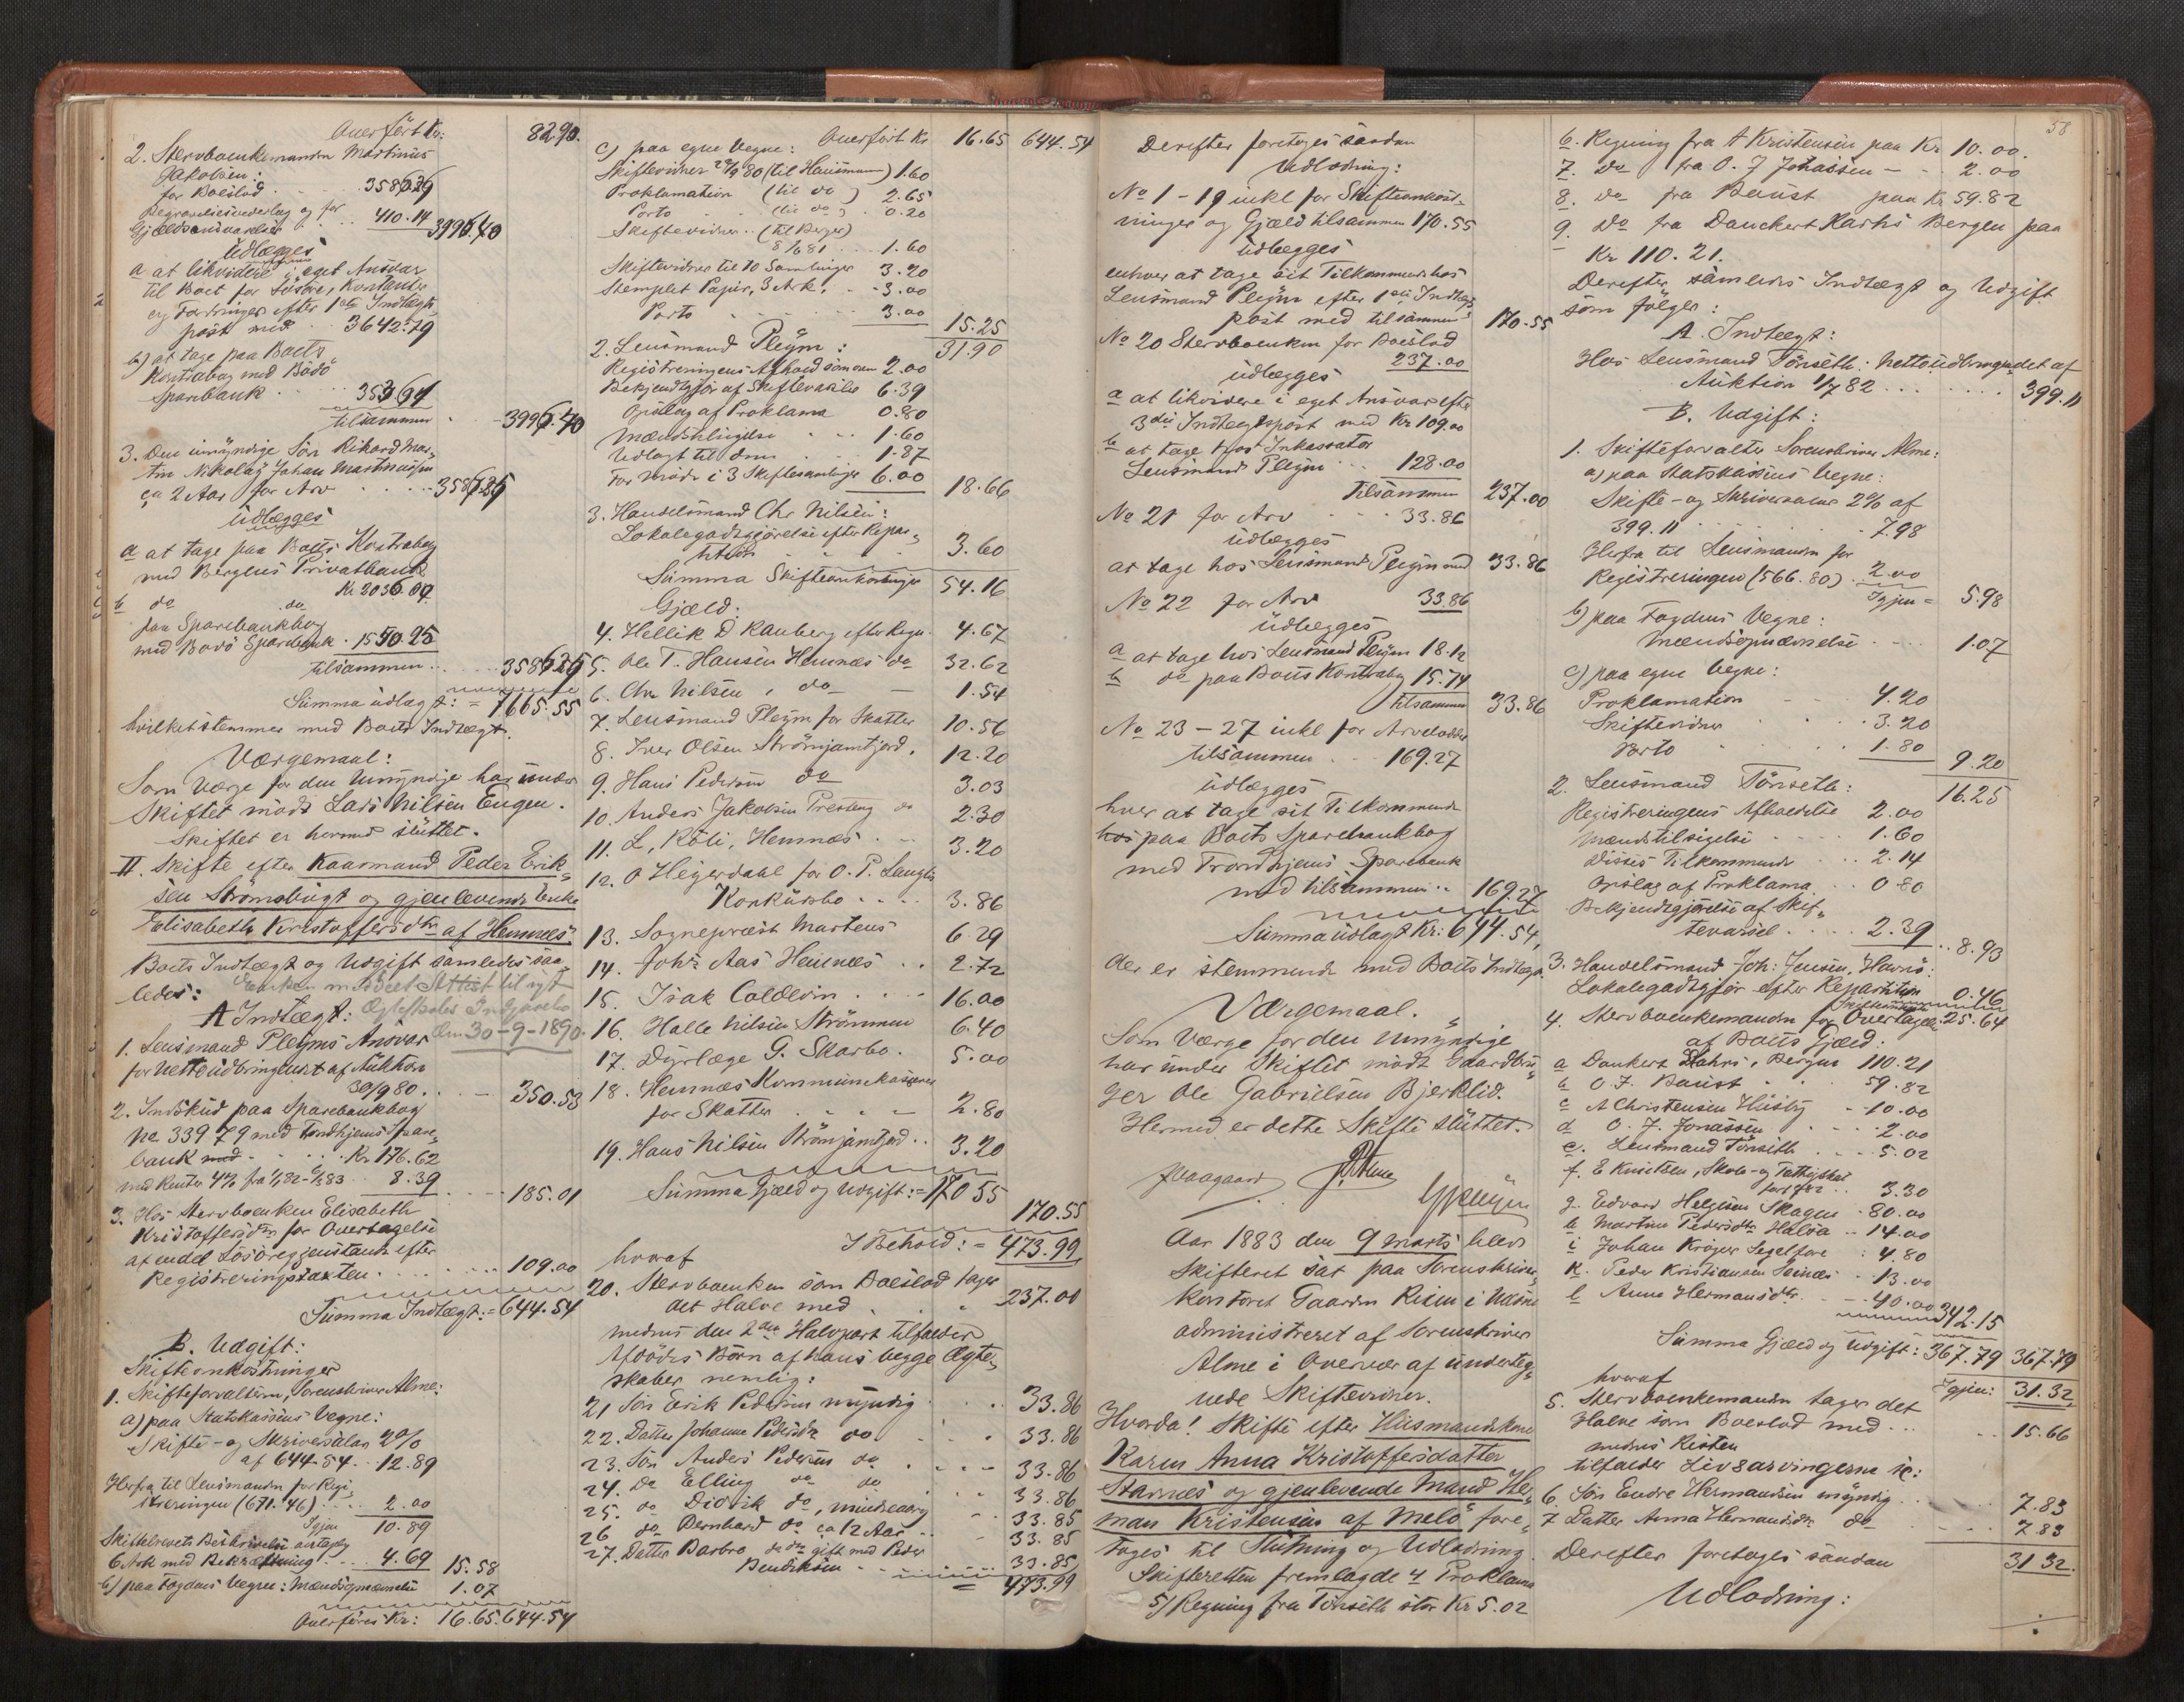 Overført Kr: 82.90.
2. Stervboenkemanden Martinus
Jakobsen:
for Boeslod . . 3586.26
Begravelsesvederlag og for
Gjældsansvarlig . . 410.14 3996.40
Udlægges
a at likvidere i eget Ansvar
til Boet for Løsøre, Kontanter
og Fordringer efter 1ste Indtægts
post med . . 3642.79
b) at tage paa Boets
Kontrabog med Bodø
Sparebank . . 353.61
tilsammen . 3996.40
3. Den umyndige Søn Rikard Mar-
tin Nikolaÿ Johan Martinussen
ca 2 Aar for Arv . . . . 3586.25
Udlægges
a at tage paa Boets Kontrabog
med Bergens Privatbank
Kr 2036.00
b do do
paa Sparebankbog
med Bodø Sparebank . 1550.25
tilsammen . . . . 3586.25
Summa udlagt: = 7665.55
hvilket stemmer med Boets Indtægt.
Værgemaal:
Som Værge for den Umyndige har under
Skiftet mødt Lars Nilsen Engen.
Skiftet er hermed sluttet.
II. Skifte efter Kaarmand Peder Erik-
sen Strømsbugt og gjenlevende Enke
Elisabeth Kristoffersdtr af Hemnes.
Boets Indtægt og Udgift samledes saa-
ledes: Enken meddelt Attest til nyt
A Indtægt: Ægteskabs Indgaaelse
1. Lensmand Pleÿms Ansvar den 30-9-1890.
for Nettoudbringendet af Auktion
30/9 80 . . . 350.53
2. Indskud paa Sparebankbog
No 339 79 med Trondhjems Spare-
bank med . . . Kr 176.62
med Renter 4% fra 1/1 82 - 1/3 83 . . 8.39 . . . 185.01
3. Hos Stervboenken Elisabeth
Kristoffersdtr for Overtagelse
af endel Løsøregjenstande efter
Registreringstaxten . . . . . . . 109.00
Summa Indtægt: = 644.54
B. Udgift:
Skifteomkostninger
1. Skifteforvalteren, Sorenskriver Alme:
a) paa Statskassens Vegne:
Skifte- og Skriversalær 2%
af 644.54 . . 12.89
Herfra til Lensmanden for Regi-
streringen (671.46) . . . 2.00
Igjen 10.89
Skiftebrevets Beskrivelse
6 Ark med Bekræftning . . . 4.69 15.58
b) paa Fogdens Vegne: Mændsopnævnelse 1.07
Overføres Kr: 16.65. 644.54
Overført Kr 16.65 644.54
c) paa egne Vegne:
Skiftevidner 29/9 80 (til Hausmann) 1.60
Proklamation (til do) 2.65
Porto . . (til do) . 0.20
Skiftevidner . . (til Berger)
8/4 81 . . . 1.60
Skiftevidner til 10 Samlinger 3.20
Stemplet Papir, 3 Ark, . . 3.00
Porto . . . . 3.00 15.25
31.90
2. Lensmand Pleÿm:
Registreringens Afhold som oven 2.00
Bekjendtgjør af Skiftevarsler 6.39
Opslag af Proklama 0.80
Mændstilsigelse . . . 1.60
Udlagt til dem . . . 1.87
For Møde i 3 Skiftesamlinger 6.00 18.66
3. Handelsmand Chr Nilsen:
Lokalegodtgjørelse efter Repar-
tition . . . 3.60
Summa Skifteomkostninger 54.16
Gjæld:
4. Hellik D Rauberg efter Regn. 4.67
5. Ole T. Hansen Hemnæs do 32.62
6. Chr Nilsen, do — 1.54
7. Lensmand Pleÿm for Skatter 10.56
8. Iver Olsen Strømjamtjord. 12.20
9. Hans Pedersen do 3.03
10. Anders Jakobsen Presteng do 2.30
11. L, Røli, Hemnæs . . . 3.20
12. O Heÿerdahl for O. P. Langlis
Konkursbo . . . . 3.86
13. Sogneprest Martens 6.29
14. Johs Aas Hemnæs . . 2.72
15. Isak Coldevin . . . . 16.00
16. Halle Nilsen Strømmen 6.40
17. Dÿrlæge G. Skarbo. 5.00
18. Hemnæs Kommunekasserer
for Skatter . . . — 2.80
19. Hans Nilsen Strømjamtjord . . 3.20
Summa Gjæld og Udgift: = 170.55
170.55
I Behold: = 473.99
hvoraf
20. Stervboenken som Boeslod tager
det Halve med . . . 237.00
medens den 2den Halvpart tilfalder
Afdødes Børn af hans begge Ægte-
skaber nemlig:
21 Søn Erik Pedersen mÿndig . . . 33.86
22. Datter Johanne Pedersdtr do . . . 33.86
23. Søn Anders Pedersen do . . . 33.86
24. do Elling do do 33.86
25. do Didrik do, mindreaarig 33.85
26 do Bernhard do ca 12 Aar . . 33.85
27. Datter Barbro do do gift med Peder
Bendiksen . . . 33.85
473.99
Derefter foretoges saadan
Udlodning:
No 1 - 19 inkl for Skifteomkost-
ninger og Gjæld tilsammen 170.55
udlægges
enhver at tage sit Tilkommende hos
Lensmand Pleÿm efter 1ste Indtægts
post med tilsammen 170.55
No 20 Stervboenken for Boeslod
237.00
udlægges
a at likvidere i eget Ansvar efter
3die Indtægtspost med Kr 109.00
b at tage hos Inkassator
Lensmand Pleÿm . . . 128.00
Tilsammen 237.00
No 21 for Arv . . . 33.86
udlægges
at tage hos Lensmand Pleÿm med 33.86
No 22 for Arv 33.86
udlægges
a at tage hos Lensmand Pleÿm 18.12
b do paa Boets Kontrabog 15.74
tilsammen 33.86
No 23 - 27 inkl for Arvelodder
tilsammen . . 169.27
udlægges
hver at tage sit Tilkommende
hos paa Boets Sparebankbog
med Trondhjems Sparebank
med tilsammen . . 169.27
Summa udlagt Kr: 644.54,
der er stemmende med Boets Indtægt.
Værgemaal.
Som Værge for den Umÿndige
har under Skiftet mødt Gaardbru-
ger Ole Gabrielsen Bjerklid.
Hermed er dette Skifte sluttet.
Aar 1883 den 9 Marts blev
Skifteret sat paa Sorenskriver-
kontoret Gaarden Risen i Næsne
administreret af Sorenskriver
Alme i Overvær af underteg-
nede Skiftevidner.
Hvorda! Skifte efter Husmandskone
Karen Anna Kristoffersdatter
Stavnes og gjenlevende Mand Her-
man Kristensen af Melø fore-
toges til Slutning og Udlodning.
Skifteretten fremlagde 4 Proklama
5) Regning fra Tønseth stor Kr 5.02
58.
6. Regning fra A Kristensen paa Kr 10.00.
7. Do fra O. J Johassen — - 2.00
8. do fra Baust paa Kr 59.82
9. Do fra Danckert Krahs Bergen paa
Kr 110.21.
Derefter samledes Indtægt og Udgift
som følger:
A. Indtægt:
Hos Lensmand Tønseth: Nettoudbringendet af
Auktion 1/7 82 . . . . . . . 399.11
B. Udgift:
1. Skifteforvalter Sorenskriver Alme:
a) paa Statskassens Vegne:
Skifte- og Skriversalær 2% af
399.11 . . . . . . 7.98
Herfra til Lensmanden for
Registreringen (566.80) . 2.00
Igjen = 5.98
b) paa Fogdens Vegne:
Mændsopnævnelse . . . 1.07
c) paa egne Vegne:
Proklamation . . 4.20
Skiftevidner . . . 3.20
Porto . . . 1.80 9.20
16.25
2. Lensmand Tønseth:
Registreringens Afholdelse 2.00
Mændstilsigelse . . . 1.60
Disses Tilkommende . . . 2.14
Opslag af Proklama . . 0.80
Bekjendtgjørelse af Skif-
tevarsel . . . . 2.39 . . 8.93
3. Handelsmand Joh: Jensen, Havnø:
Lokalegodtgjør efter Repartition 0.46
Skifteomkostn 25.64
4. Stervboenkemanden for Overtagelse
af Boets Gjæld:
a Dankert Krahs, Bergen 110.21
b O. J. Baust . . 59.82
c A Christensen Husby - 10.00
d O. J. Jonassen . . . 2.00
e. Lensmand Tønseth . . . 5.02
f. E Knutsen, Skole- og Fattigskat
3.30
g. Edvard Helgesen Skagen - 80.00
h Martine Pedersdtr Halsa . . 14.00
i Johan Krøger Segelfore : 4.80
k. Peder Kristiansen . 13.00
l Anne Hermansdtr. . . 40.00 342.15
Summa Gjæld og Udgift: 367.79 367.79
Igjen: 31.32
hvoraf
5. Stervboenkemanden tager det
Halve som Boeslod med . . . 15.66
medens Resten
tilfalder Livsarvingerne sc:
6. Søn Endre Hermansen mÿndig . . . 7.83
7 Datter Anna Hermansdtr do . . . 7.83
31 32.
Derefter foretoges saadan
Udlodning: